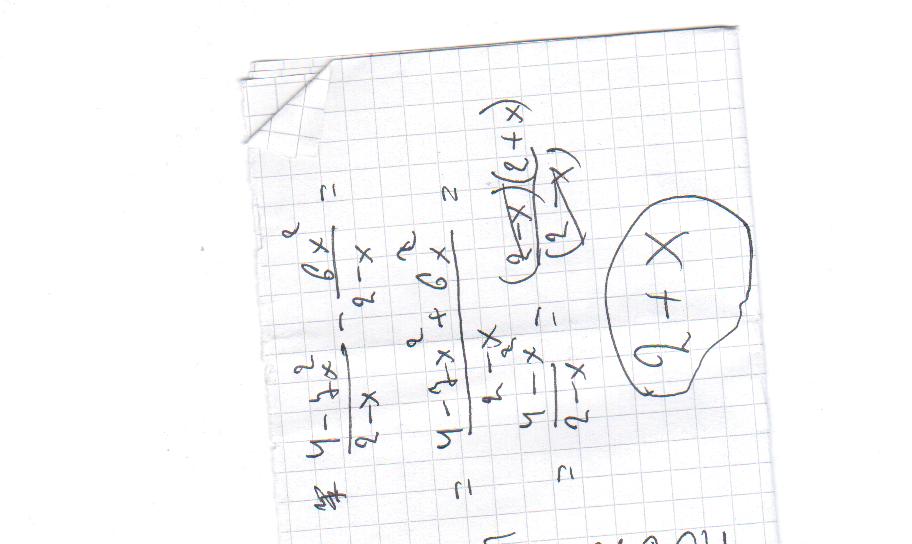 (4 - 7x²)/(2 - x) - 6x²/(2 - x) =
= (4 - 7x² + 6x²)/(2 - x) =
= (4 - x²)/(2 - x) = (2 - x)(2 + x)/(2 - x)
2 + x